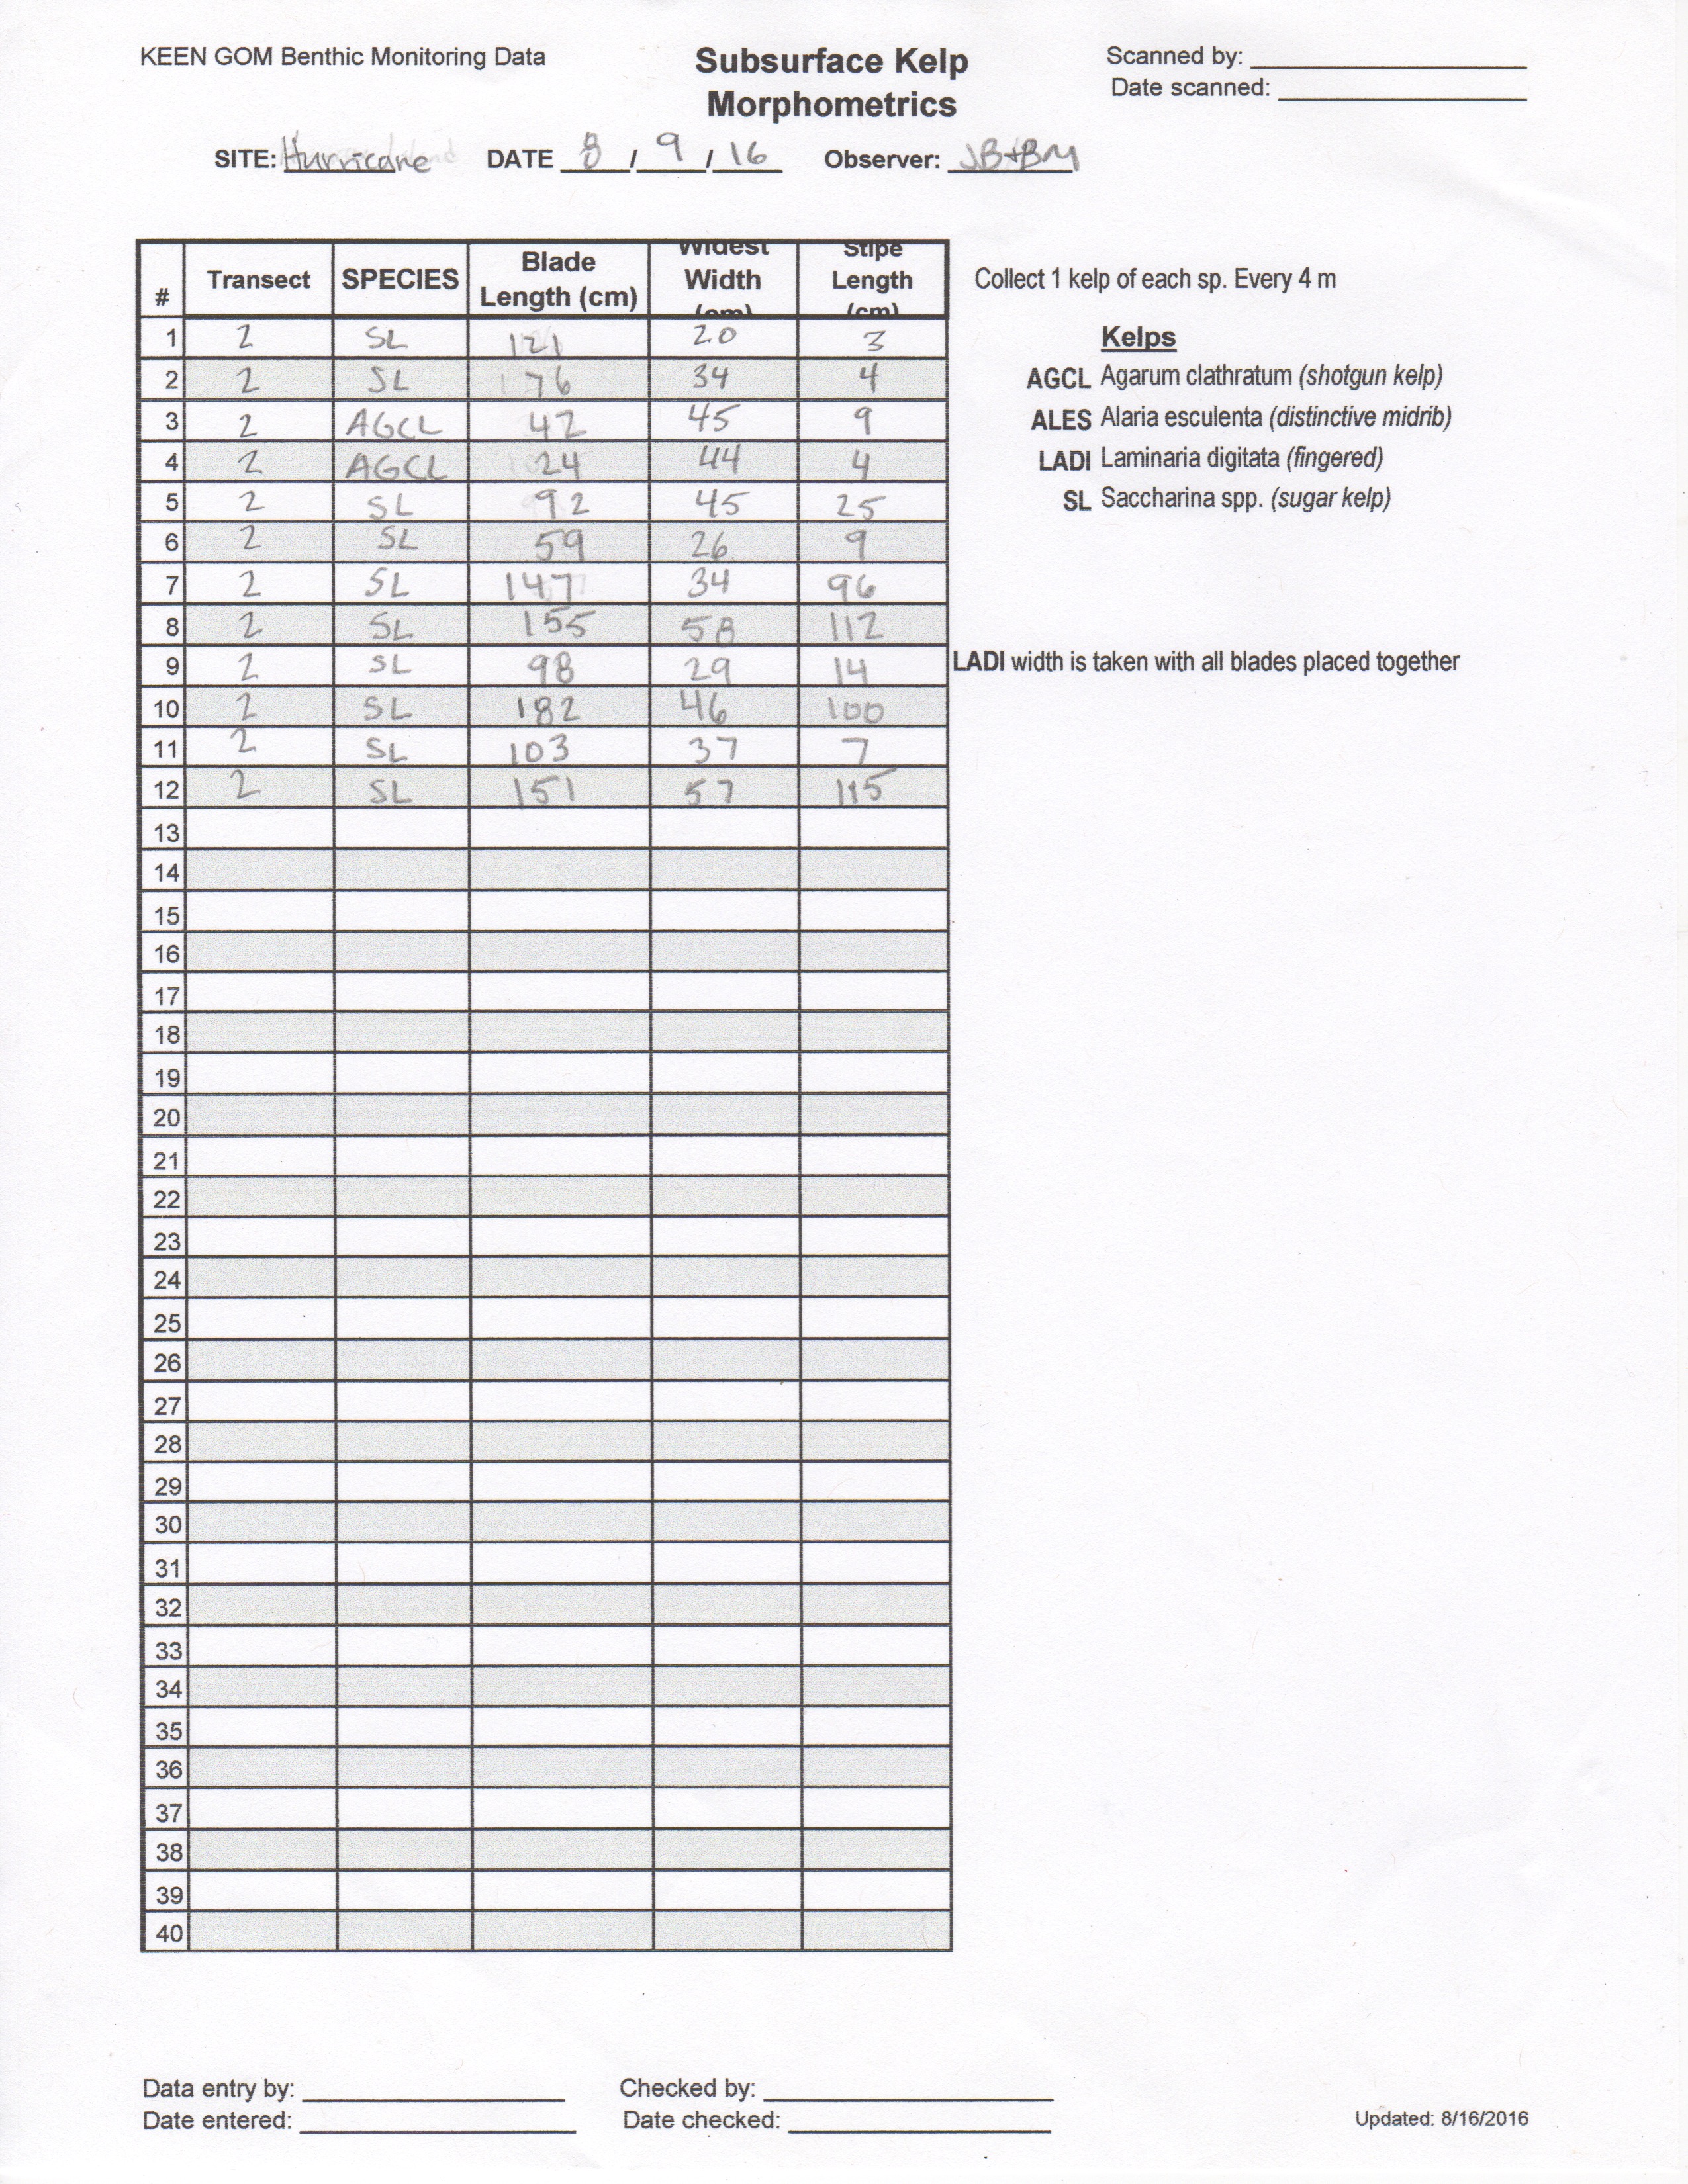 KEEN GOM Benthic Monitoring Data
Subsurface Kelp
Morphometrics
Scanned by:
Date scanned:
SITE: Hurricane DATE 8/9/16 Observer: JB+BM
# Transect SPECIES Blade Length (cm) Widest Width (cm) Stipe Length (cm)
1 2 SL 121 20 3
2 2 SL 76 34 4
3 2 AGCL 42 45 9
4 2 AGCL 24 44 4
5 2 SL 92 45 25
6 2 SL 59 26 9
7 2 SL 147 34 96
8 2 SL 155 58 112
9 2 SL 98 29 14
10 2 SL 182 46 100
11 2 SL 103 37 7
12 2 SL 151 57 115
13
14
15
16
17
18
19
20
21
22
23
24
25
26
27
28
29
30
31
32
33
34
35
36
37
38
39
40
Collect 1 kelp of each sp. Every 4 m
Kelps
AGCL Agarum clathratum (shotgun kelp)
ALES Alaria esculenta (distinctive midrib)
LADI Laminaria digitata (fingered)
SL Saccharina spp. (sugar kelp)
LADI width is taken with all blades placed together
Data entry by: Checked by:
Date entered: Date checked:
Updated: 8/16/2016